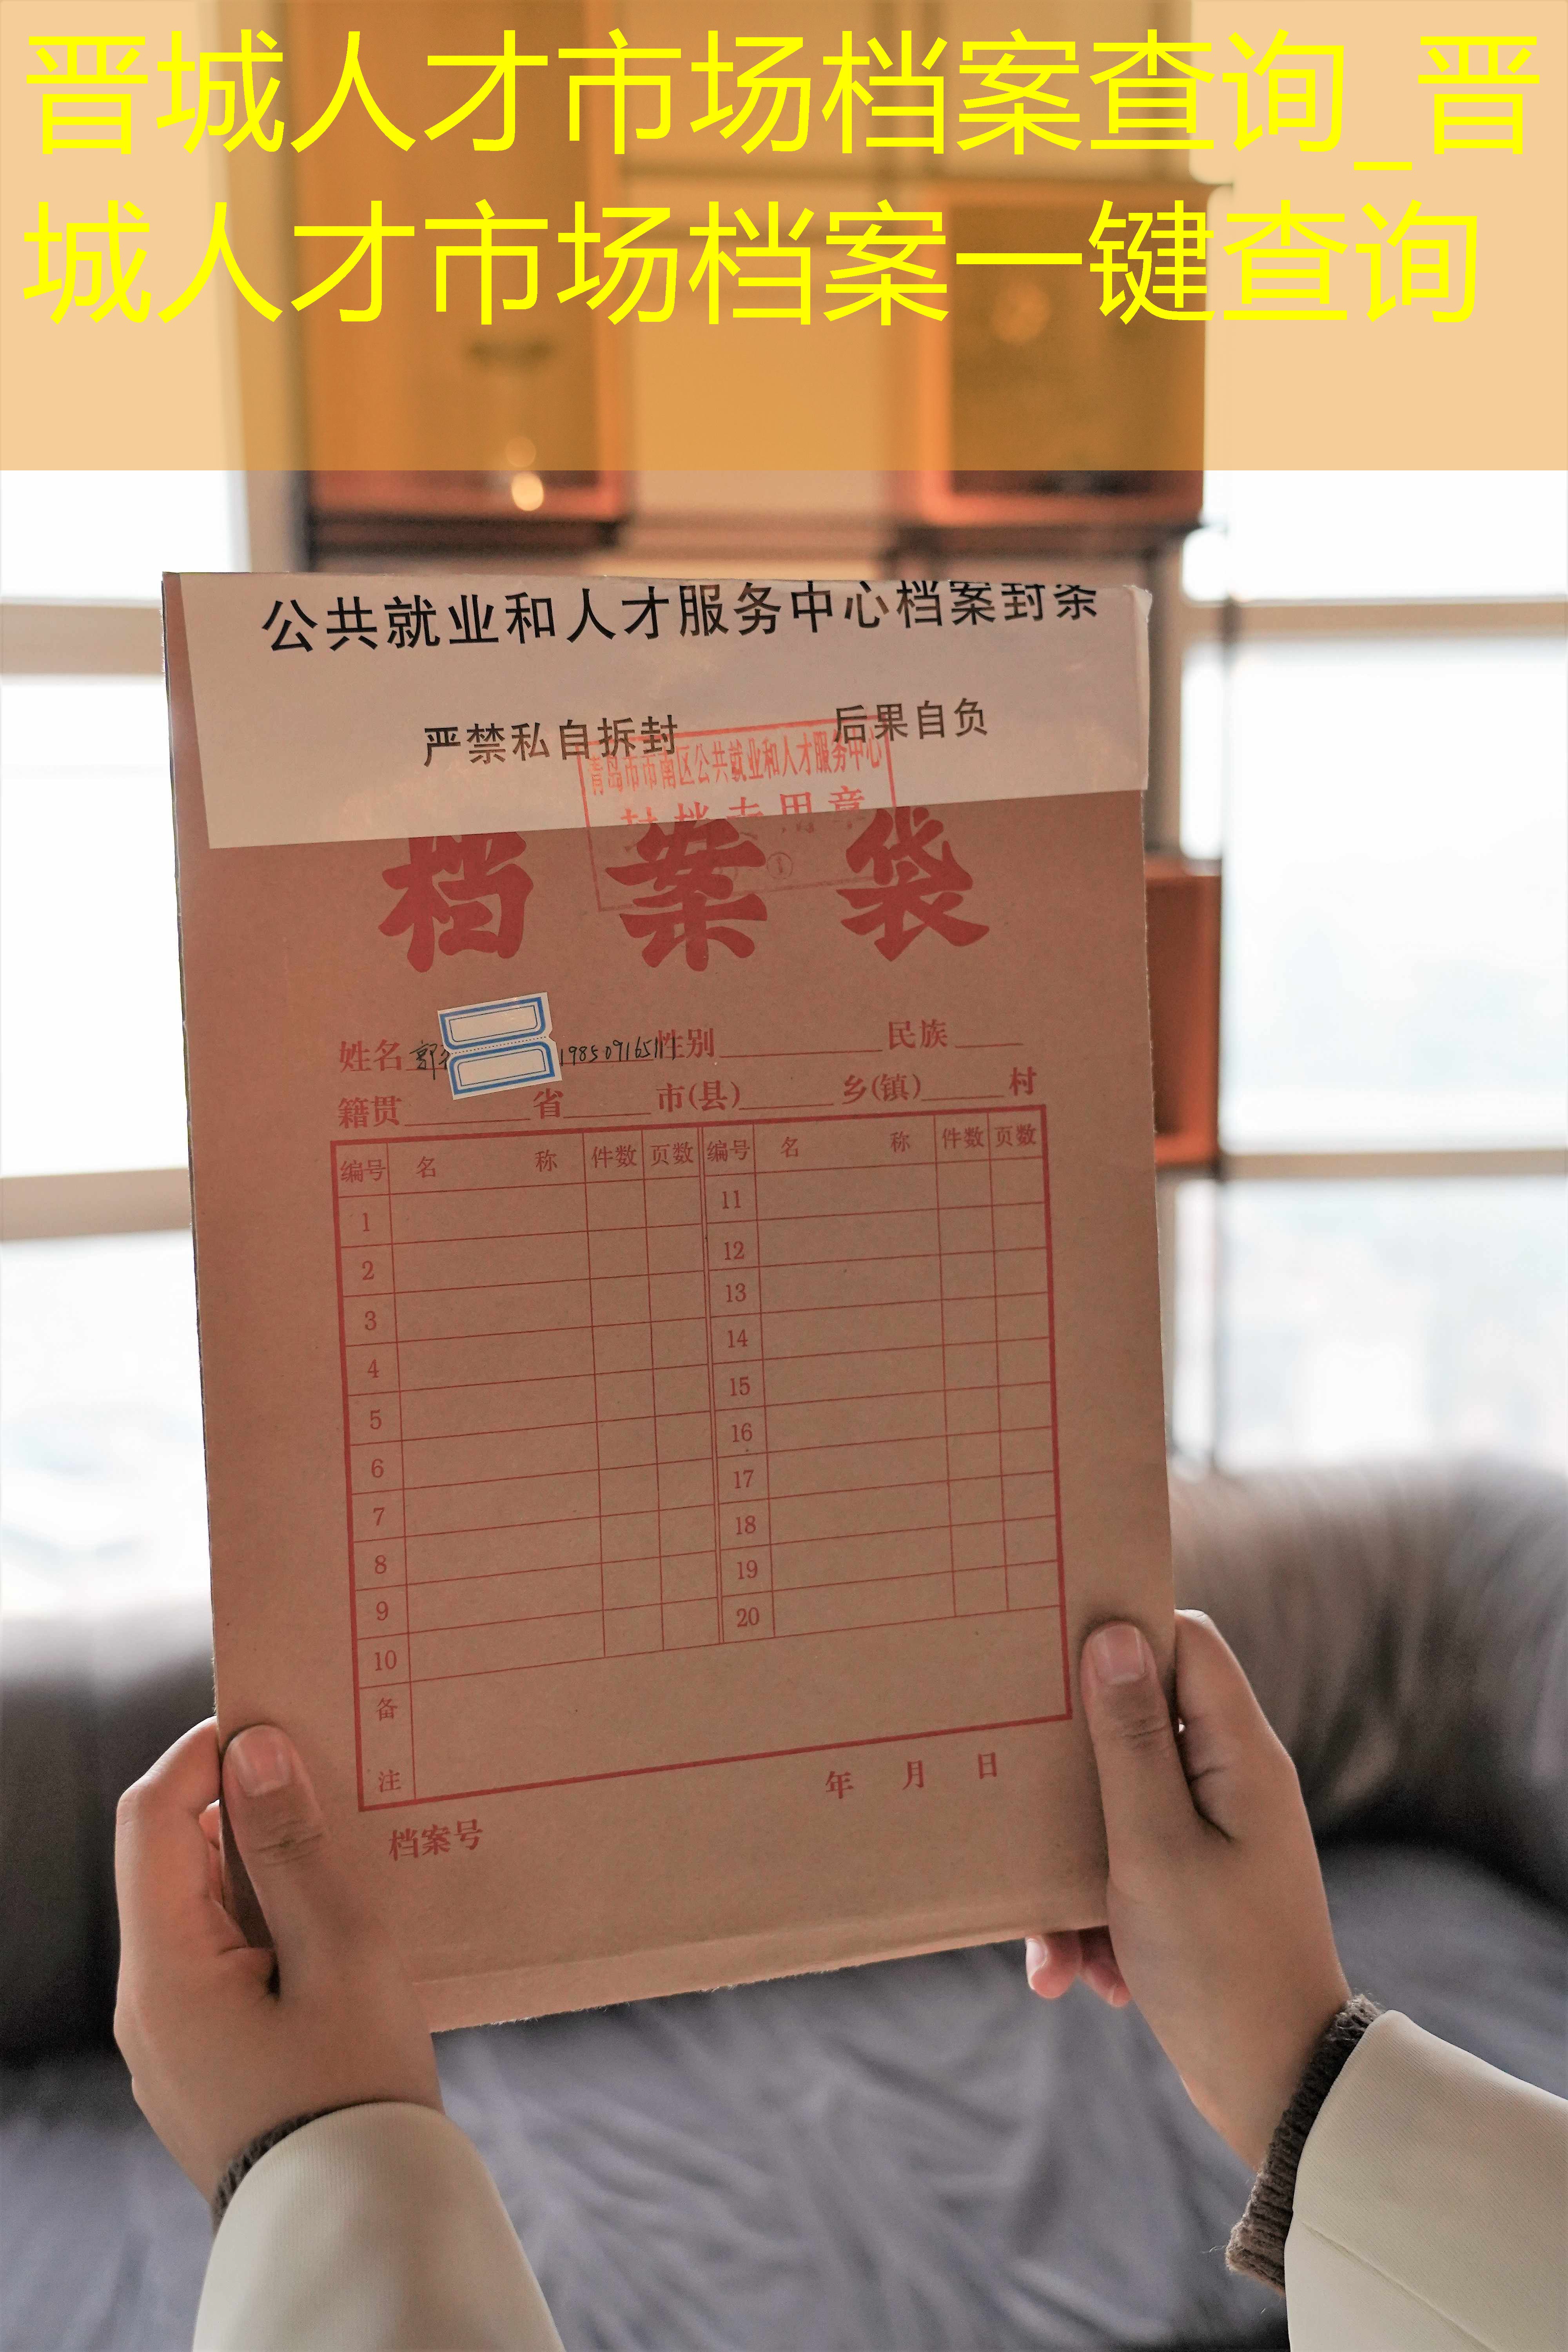 晋城人才市场档案查询_晋
城人才市场档案一键查询
公共就业和人才服务中心档案封条
严禁私自拆封 后果自负
青岛市市南区公共就业和人才服务中心
封档专用章
档案袋
姓名 郭 198509165111 性别 民族
籍贯 省 市(县) 乡(镇) 村
编号 名称 件数 页数 编号 名称 件数 页数
1 11
2 12
3 13
4 14
5 15
6 16
7 17
8 18
9 19
10 20
备注
年 月 日
档案号